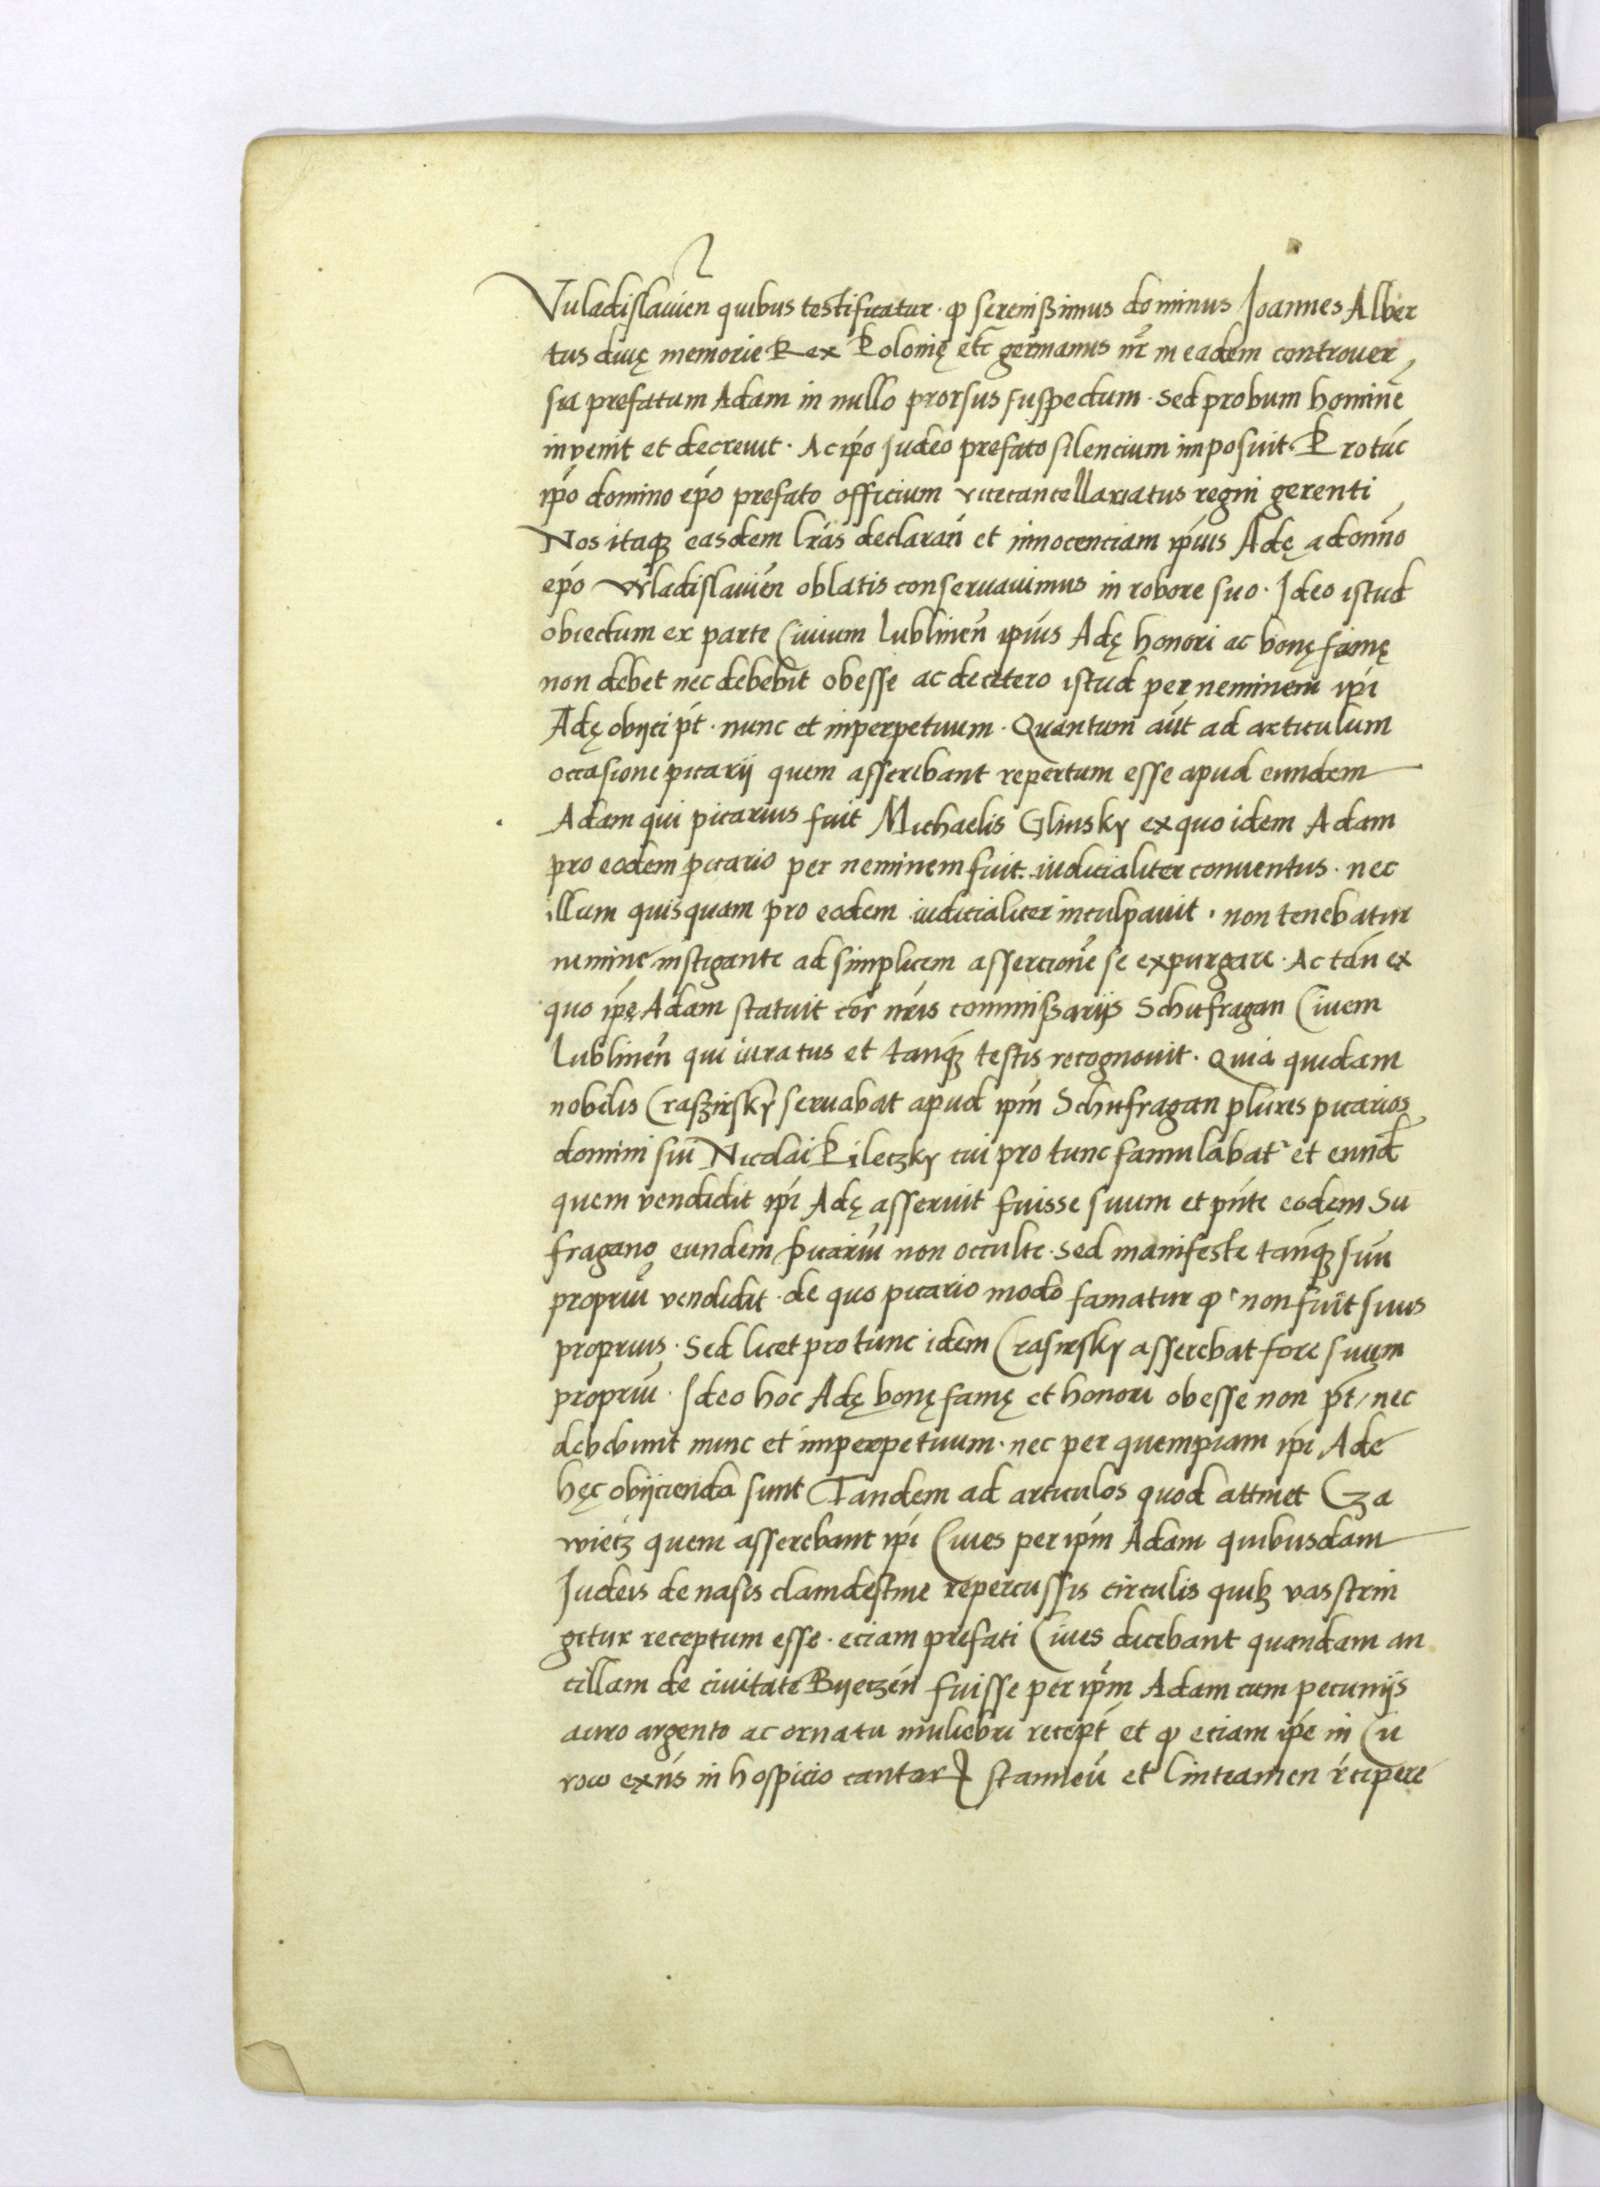 Vuladislavien̄ quibus testificatur · ꝙ sereniſsimus dominus Joannes Alber
tus divę memorie Rex Polonię etc̄ germanus nr̄ in eadem controuer
sia prefatum Adam in nullo prorsus suspectum · Sed probum hominē
invenit et decrevit · Ac ip̄o Judeo prefato silencium imposuit · Protūc
ip̄o domino ep̄o prefato officium vicecancellariatus regni gerenti
Nos itaqꝫ easdem lr̄as declaran̄ et innocenciam ip̄ius Adę a dom̄no
ep̄o Wladislavien̄ oblatis conseruauimus in robore suo · Ideo istud
obiectum ex parte Civium Lublinen̄ ip̄ius Adę honori ac bonę famę
non debet nec debebit obesse ac decetero istud per neminem ip̄i
Adę obijci pt̄ · nunc et inperpetuum · Quantum aūt ad articulum
occasione picarij quem asserebant repertum esse apud eundem
Adam qui picarius fuit Michaelis Glinsky ex quo idem Adam
pro eodem picario per neminem fuit iudicialiter conuentus · nec
illum quisquam pro eodem iudicialiter inculpauit · non tenebatur
nemine instigante ad simplicem assercionē se expurgare · Ac tān ex
quo ip̄ę Adam statuit cor̄ nr̄is commiſsarijs Schufragan Civem
Lublinen̄ qui iuratus et tanqꝫ testis recognouit · Quia quidam
nobilis Craszirsky seruabat apud ip̄m Schufragan plures picarios
domini sui Nicolai Pileczky cui pro tunc famulabat᷑ et eund̄
quem vendidit ip̄i Adę asseruit fuisse suum et pn̄te eodem Su
fragano eundem picariū non occulte · Sed manifeste tanqꝫ suū
propriū vendidit · de quo picario modo famatur ꝙ non fuit suus
proprius · Sed licet pro tunc idem Crasirsky asserebat fore suum
propriū · Ideo hoc Adę bonę famę et honori obesse non pt̄ / nec
debebunt nunc et inperpetuum · nec per quempiam ip̄i Ade
hęc obijcienda sunt Tandem ad articulos quod attinet Cza
wiecz quem asserebant ip̄i Ciues per ip̄m Adam quibusdam
Judeis de nasis clamdestine repercussis circulis quibꝫ vas strin
gitur receptum esse · eciam prefati Ciues dicebant quandam an
cillam de civitate Byeczen̄ fuisse per ip̄m Adam cum pecunijs
auro argento ac ornatu muliebri recept̄ et ꝙ eciam ip̄e in Cu
row exn̄s in hospicio cantarꝝ stanneū et linteamen r̄cipere